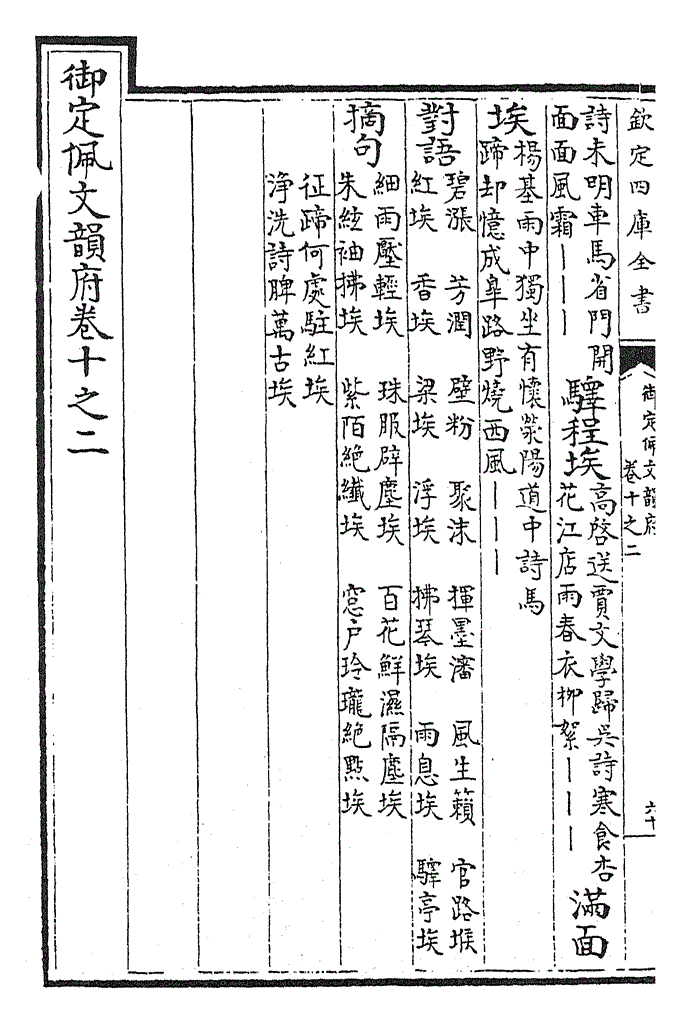 欽定四庫全書
御定佩文韻府
卷十之二
六十
詩未明車馬省門開
面面風霜｜｜｜
驛程埃
高啓送賈文學歸吳詩寒食杏
花江店雨春衣柳絮｜｜｜
滿面
埃
楊基雨中獨坐有懷滎陽道中詩馬
蹄却憶成臯路野燒西風｜｜｜
對語
碧漲　芳潤　壁粉　聚沫　揮墨瀋　風生籟　官路堠
紅埃　香埃　梁埃　浮埃　拂琴埃　雨息埃　驛亭埃
摘句
細雨壓輕埃　珠服辟塵埃　百花鮮濕隔塵埃
朱絃袖拂埃　紫陌絶纖埃　窓户玲瓏絶點埃
征蹄何處駐紅埃
淨洗詩脾萬古埃
御定佩文韻府卷十之二